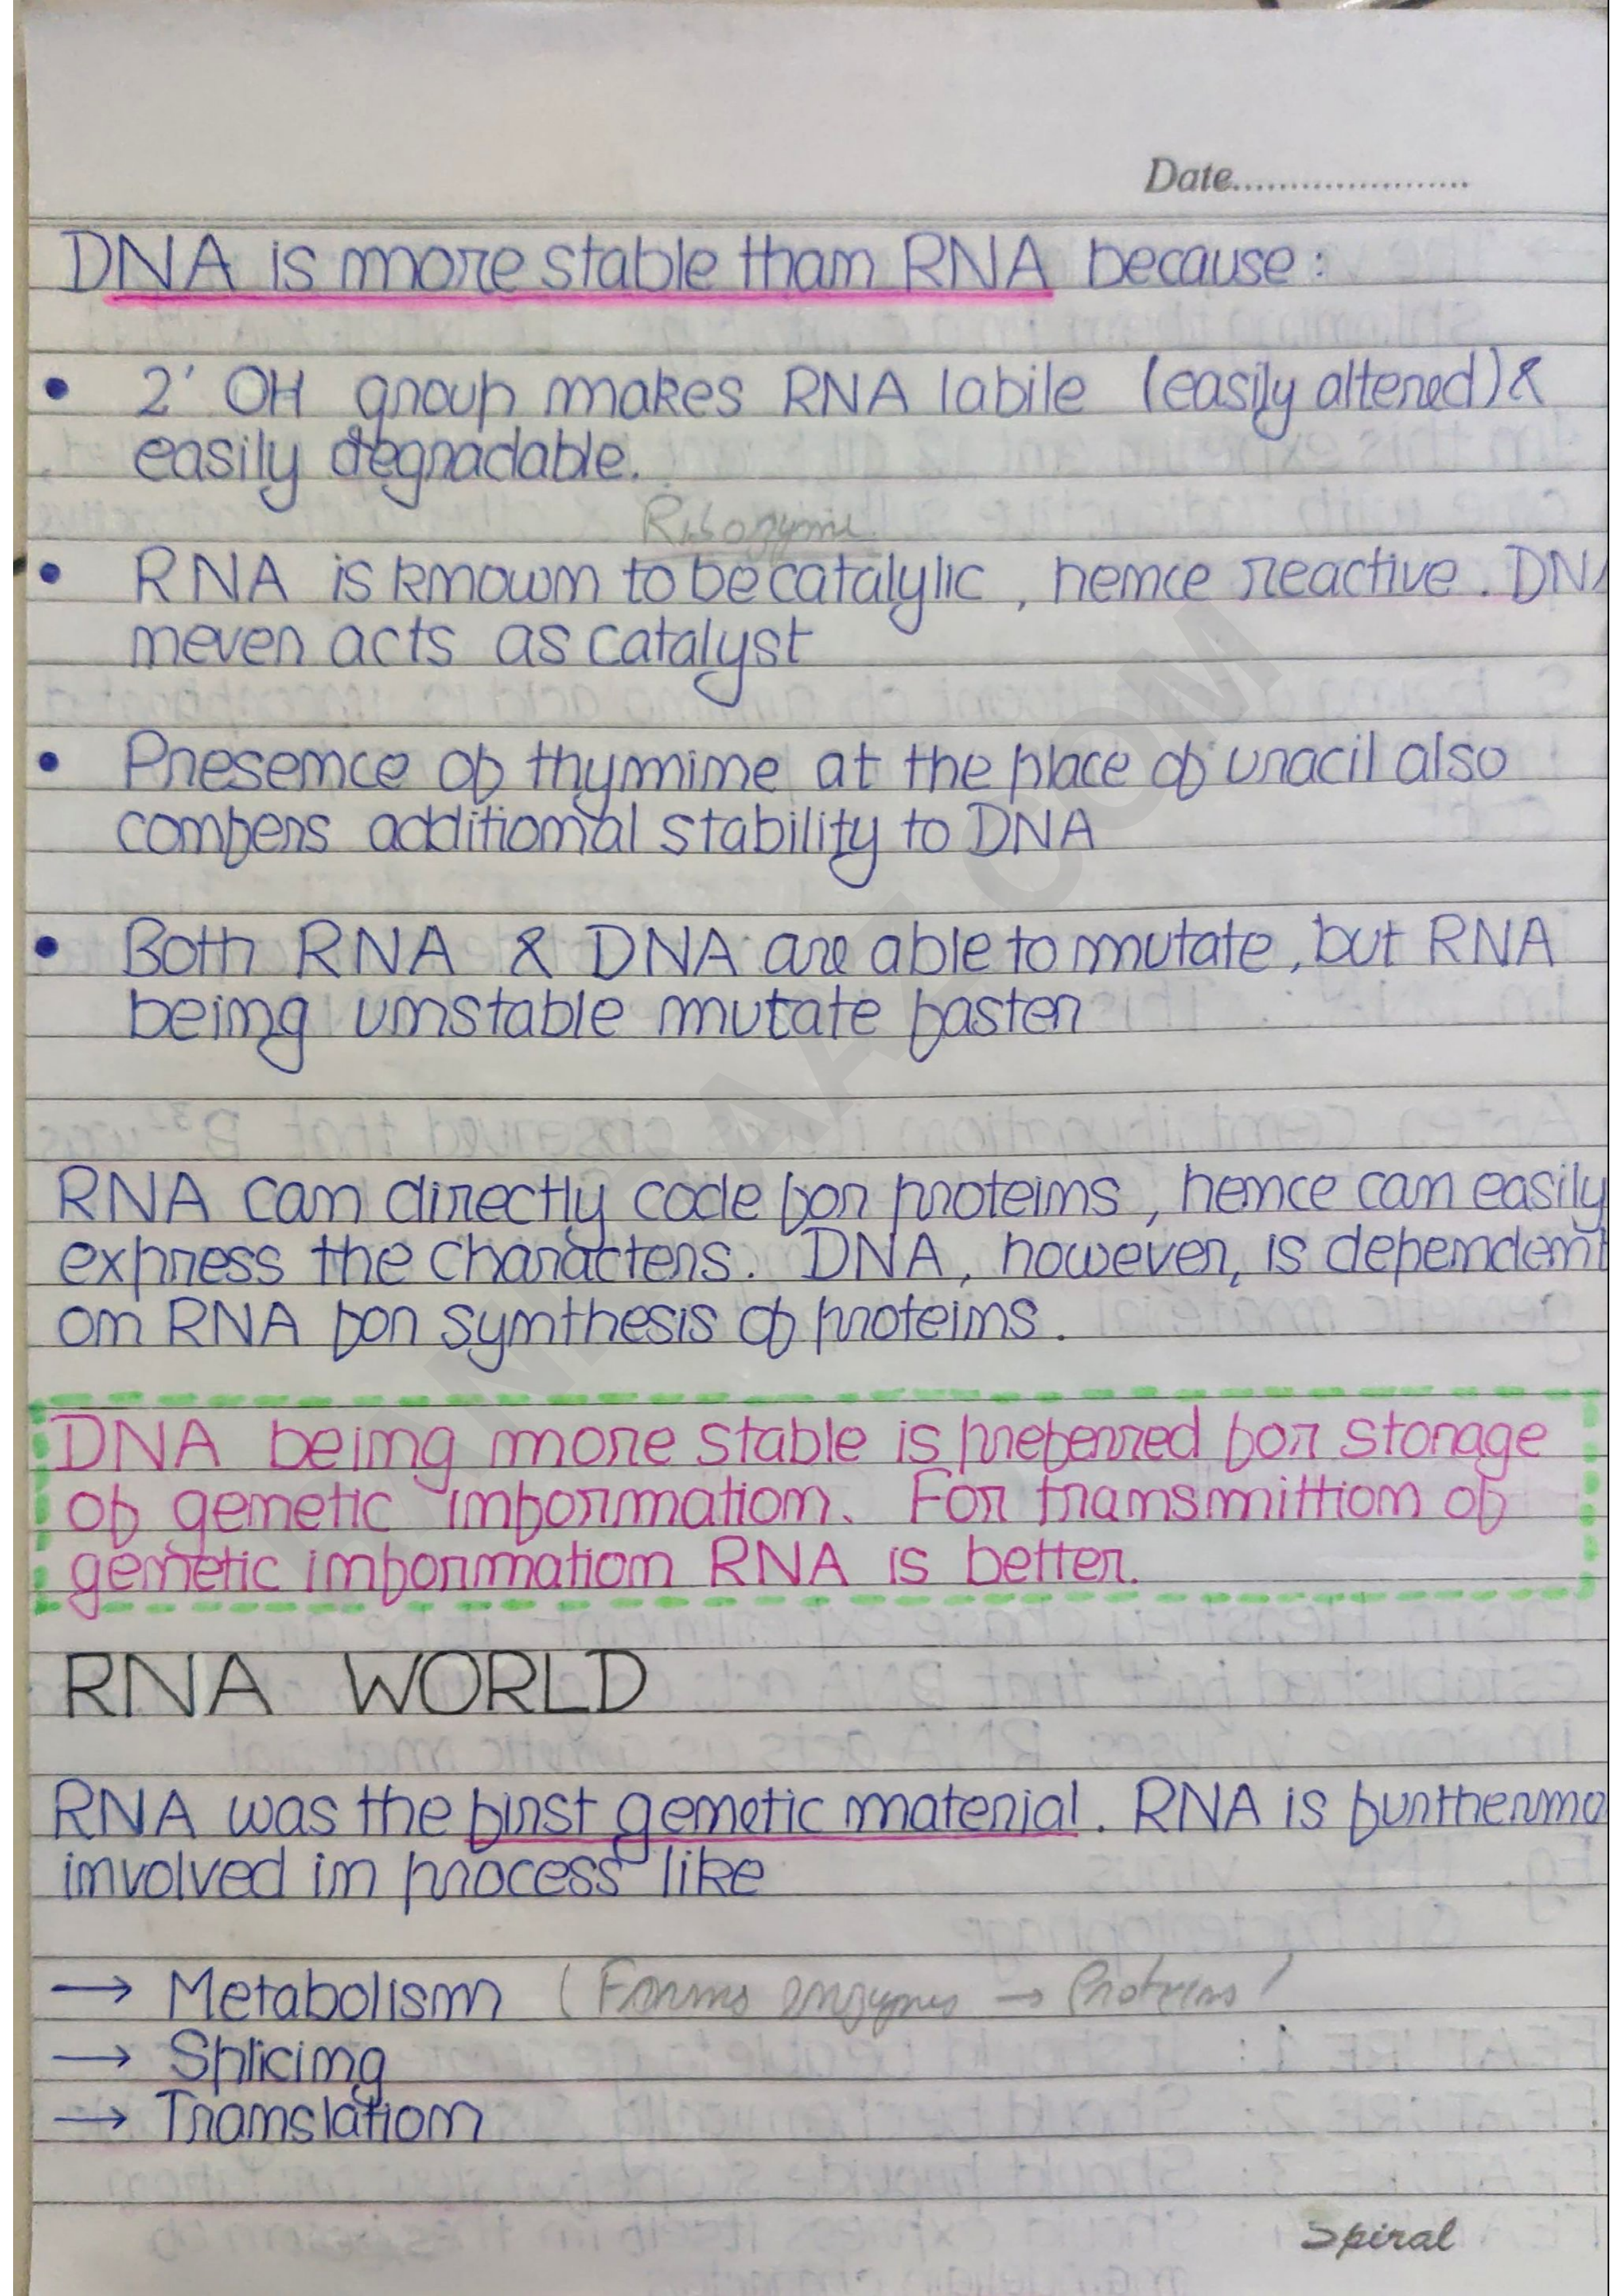 Date......................
DNA is more stable than RNA because :
• 2' OH group makes RNA labile (easily altered) &
easily degradable.
Ribozyme
• RNA is known to be catalylic , hence reactive . DNA
never acts as catalyst
• Presence of thymine at the place of uracil also
confers additional stability to DNA
• Both RNA & DNA are able to mutate , but RNA
being unstable mutate faster
RNA can directly code for proteins , hence can easily
express the characters. DNA, however, is dependent
on RNA for synthesis of proteins .
DNA being more stable is preferred for storage
of genetic information. For transmittion of
genetic information RNA is better.
RNA WORLD
RNA was the first genetic material . RNA is furthermo
involved in process like
→ Metabolism ( Forms enzymes → Proteins )
→ Splicing
→ Translation
Spiral